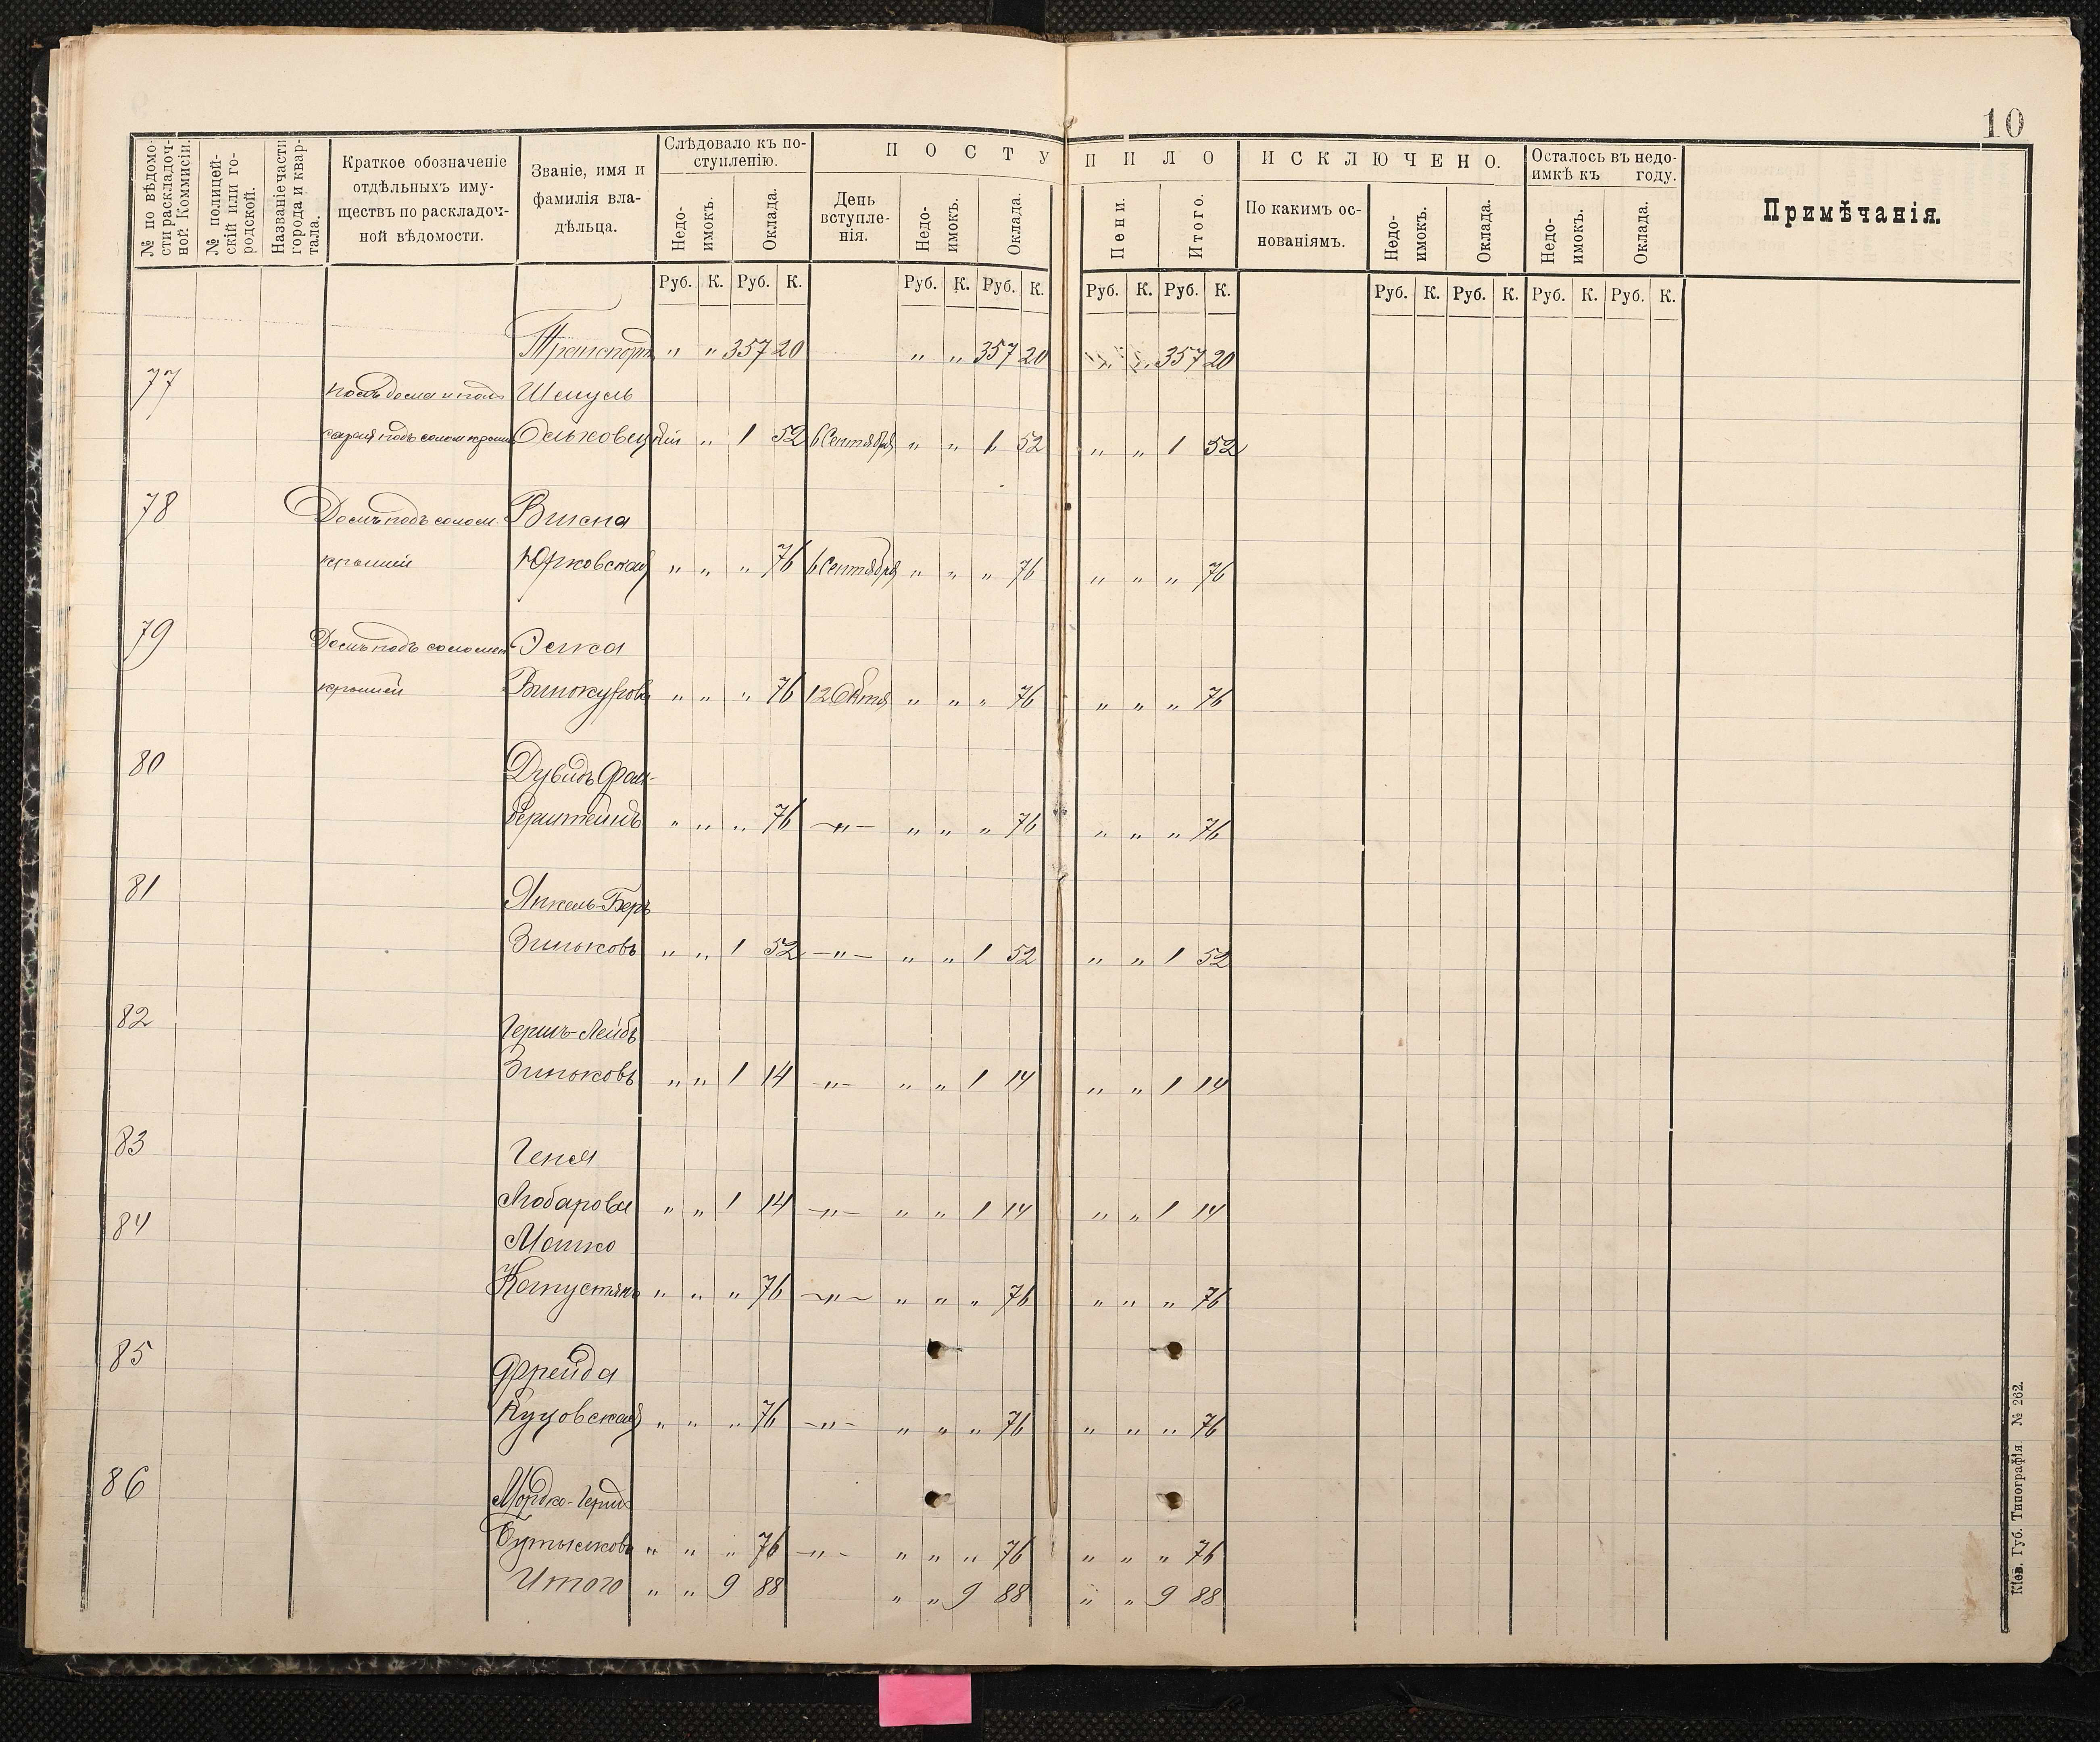 10
№ по вѣдомости раскладочной Коммисіи.
№ полицейскій или городской.
Названіе части города и квартала.
Краткое обозначеніе
отдѣльныхъ иму-
ществъ по раскладоч-
ной вѣдомости.
Званіе, имя и
фамилія вла-
дѣльца.
Слѣдовало къ по-
ступленію.
Недо-
имокъ.
Оклада.
ПОСТУПИЛО
День
вступле-
нія.
Недо-
имокъ.
Оклада.
Пени.
Итого.
ИСКЛЮЧЕНО.
По какимъ ос-
нованіямъ.
Недо-
имокъ.
Оклада.
Осталось въ недо-
имкѣ къ году.
Недо-
имокъ.
Оклада.
Примѣчанія.
Руб. К. Руб. К. Руб. К. Руб. К. Руб. К. Руб. К. Руб. К. Руб. К. Руб. К. Руб. К.
Транспортъ „ „ 357 20 „ „ 357 20 „ „ 357 20
77 дома и Шмуль
сарая подъ солом „ 1 52 6 Сентября „ „ 1 52 „ „ 1 52
78 Домъ подъ солом.
крышей Юрковская „ „ „ 76 6 Сентября „ „ „ 76 „ „ „ 76
79 Домъ подъ соломен
крышей Винокурова „ „ „ 76 12 Октя „ „ „ 76 „ „ „ 76
80 Дувидъ
„ „ „ 76 —„— „ „ „ 76 „ „ „ 76
81 Янкель-Беръ
Зиньковъ „ „ 1 52 —„— „ „ 1 52 „ „ 1 52
82 Гершъ-Лейбъ
Зиньковъ „ „ 1 14 —„— „ „ 1 14 „ „ 1 14
83 Геня
Любарова „ „ 1 14 —„— „ „ 1 14 „ „ 1 14
84 Мошко
Капустянъ „ „ „ 76 —„— „ „ „ 76 „ „ „ 76
85 Фрейда
„ „ „ 76 —„— „ „ „ 76 „ „ „ 76
86 Мордко-Гершъ
„ „ „ 76 —„— „ „ „ 76 „ „ „ 76
Итого „ „ 9 88 „ „ 9 88 „ „ 9 88
Кіев. Губ. Типографія. № 262.